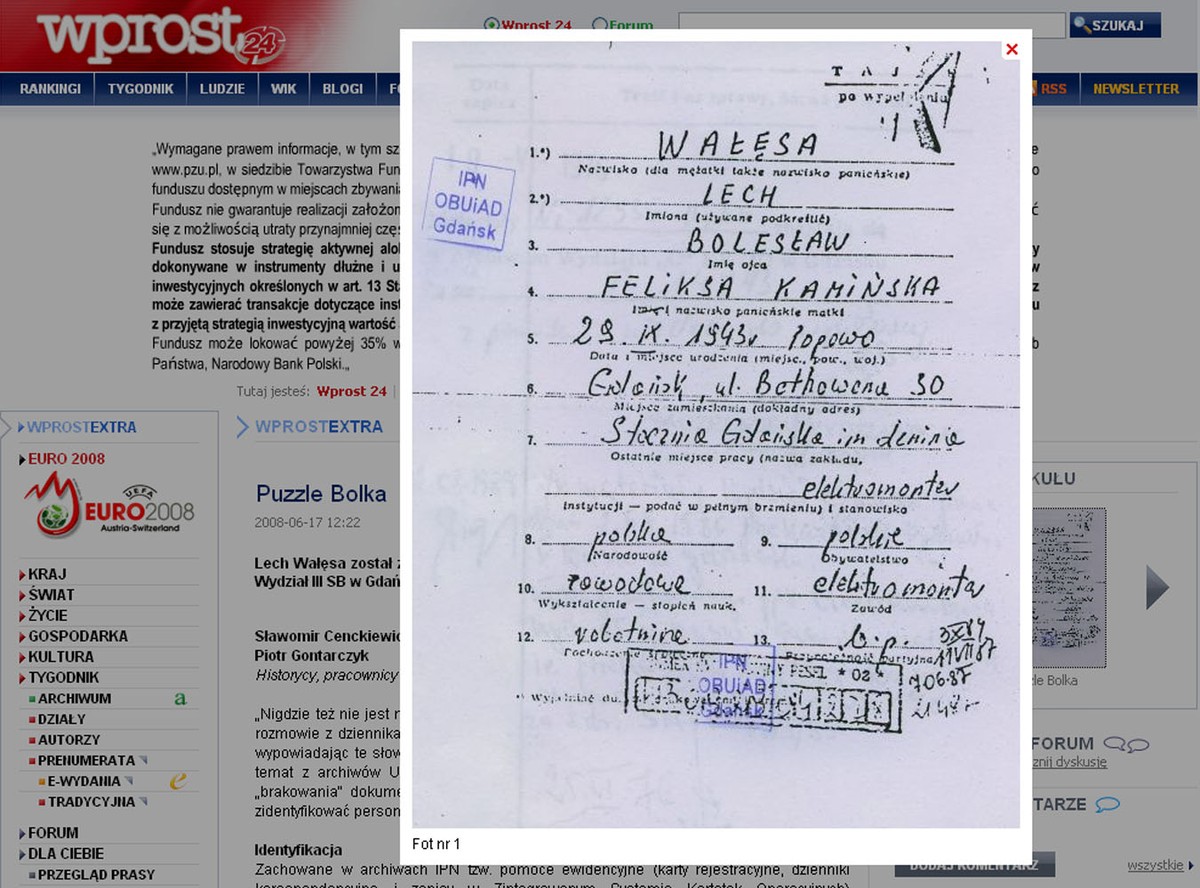 wprost 24
Wprost 24 Forum
SZUKAJ
RANKINGI TYGODNIK LUDZIE WIK BLOGI
RSS NEWSLETTER
„Wymagane prawem informacje, w tym
www.pzu.pl, w siedzibie Towarzystwa
funduszu dostępnym w miejscach
Fundusz nie gwarantuje realizacji
się z możliwością utraty przynajmniej
Fundusz stosuje strategię aktywnej
dokonywane w instrumenty dłużne i
inwestycyjnych określonych w art. 13
może zawierać transakcje dotyczące
z przyjętą strategią inwestycyjną wartość
Fundusz może lokować powyżej 35%
Państwa, Narodowy Bank Polski.„
Tutaj jesteś: Wprost 24 |
WPROSTEXTRA
EURO 2008
UEFA
EURO2008
Austria-Switzerland
KRAJ
ŚWIAT
ŻYCIE
GOSPODARKA
KULTURA
TYGODNIK
ARCHIWUM a
DZIAŁY
AUTORZY
PRENUMERATA
E-WYDANIA e
TRADYCYJNA
FORUM
DLA CIEBIE
PRZEGLĄD PRASY
WPROSTEXTRA
Puzzle Bolka
2008-06-17 12:22
Lech Wałęsa został
Wydział III SB w
Sławomir
Piotr Gontarczyk
Historycy, pracownicy
„Nigdzie też nie jest
rozmowie z
wypowiadając te
temat z archiwów
„brakowania”
Identyfikacja
Zachowane w archiwach IPN tzw. pomoce ewidencyjne (karty rejestracyjne, dzienniki
T A J
po wypełnieniu
IPN
OBUiAD
Gdańsk
1.*) WAŁĘSA
Nazwisko (dla mężatki także nazwisko panieńskie)
2.*) LECH
Imiona (używane podkreślić)
3. BOLESŁAW
Imię ojca
4. FELIKSA KAMIŃSKA
Imię i nazwisko panieńskie matki
5. 29. IX. 1943r Popowo
Data i miejsce urodzenia (miejsc., pow., woj.)
6. Gdańsk, ul. Bethowena 30
Miejsce zamieszkania (dokładny adres)
7. Stocznia Gdańska im Lenina
Ostatnie miejsce pracy (nazwa zakładu,
elektromonter
instytucji — podać w pełnym brzmieniu) i stanowisko
8. polska 9. polskie
Narodowość Obywatelstwo
10. zawodowe 11. elektromonter
Wykształcenie — stopień nauk. Zawód
12. robotnicze 13. b.p.
Pochodzenie społeczne Przynależność partyjna
IPN
OBUiAD
Gdańsk
Fot nr 1
FORUM
wszystkie
DODAJ KOMENTARZ